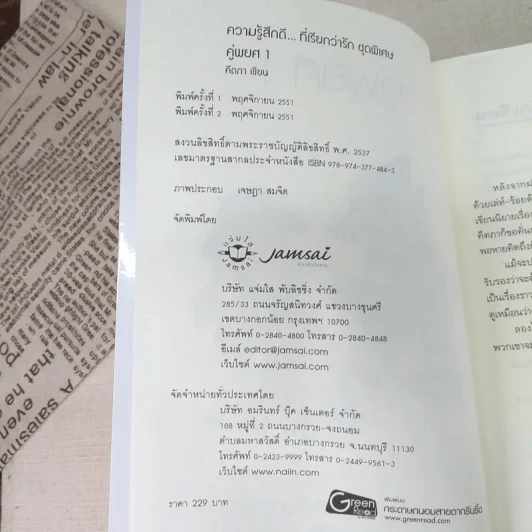 ความรู้สึกดี... ที่เรียกว่ารัก ชุดพิเศษ
คู่พยศ 1
คีตภา เขียน
พิมพ์ครั้งที่ 1 พฤศจิกายน 2551
พิมพ์ครั้งที่ 2 พฤศจิกายน 2551
สงวนลิขสิทธิ์ตามพระราชบัญญัติลิขสิทธิ์ พ.ศ. 2537
เลขมาตรฐานสากลประจำหนังสือ ISBN 978-974-377-484-3
ภาพประกอบ เจษฎา สมจิต
จัดพิมพ์โดย
แจ่มใส
Jamsai
Jamsai
บริษัท แจ่มใส พับลิชชิ่ง จำกัด
285/33 ถนนจรัญสนิทวงศ์ แขวงบางขุนศรี
เขตบางกอกน้อย กรุงเทพฯ 10700
โทรศัพท์ 0-2840-4800 โทรสาร 0-2840-4848
อีเมล์ editor@jamsai.com
เว็บไซต์ www.jamsai.com
จัดจำหน่ายทั่วประเทศโดย
บริษัท อมรินทร์ บุ๊ค เซ็นเตอร์ จำกัด
108 หมู่ที่ 2 ถนนบางกรวย-จงถนอม
ตำบลมหาสวัสดิ์ อำเภอบางกรวย จ.นนทบุรี 11130
โทรศัพท์ 0-2423-9999 โทรสาร 0-2449-9561-3
เว็บไซต์ www.naiin.com
ราคา 229 บาท
Green Read
พิมพ์บน
กระดาษถนอมสายตากรีนรี้ด
www.greenread.com
หลังจาก
ด้วยเล่ห์-ร้อย
เขียนนิยายเรื่อง
คีตภาก็ขอ
พอหายคิดถึง
แม้จะ
รับรองว่าจะ
เป็นเรื่องรา
ดูเหมือนว่า
ลอง
พวกเขาจะ
brown
talking
A salesman
that he
even